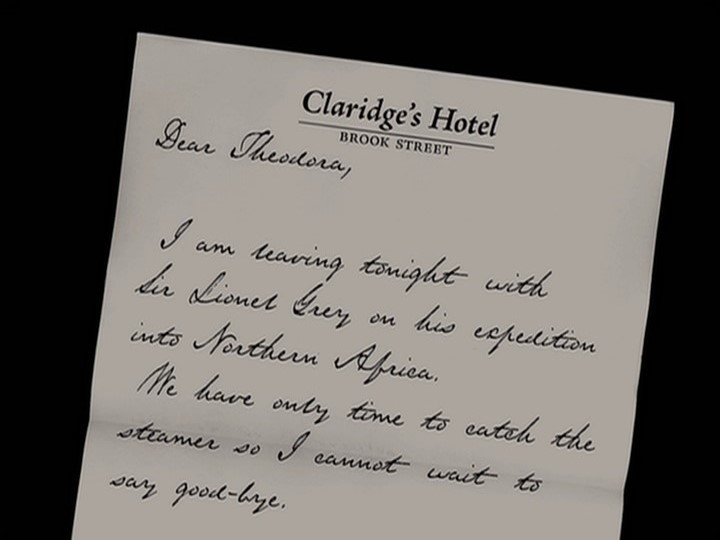 Claridge's Hotel
BROOK STREET
Dear Theodora,
I am leaving tonight with
Sir Lionel Grey on his expedition
into Northern Africa.
We have only time to catch the
steamer so I cannot wait to
say good-bye.